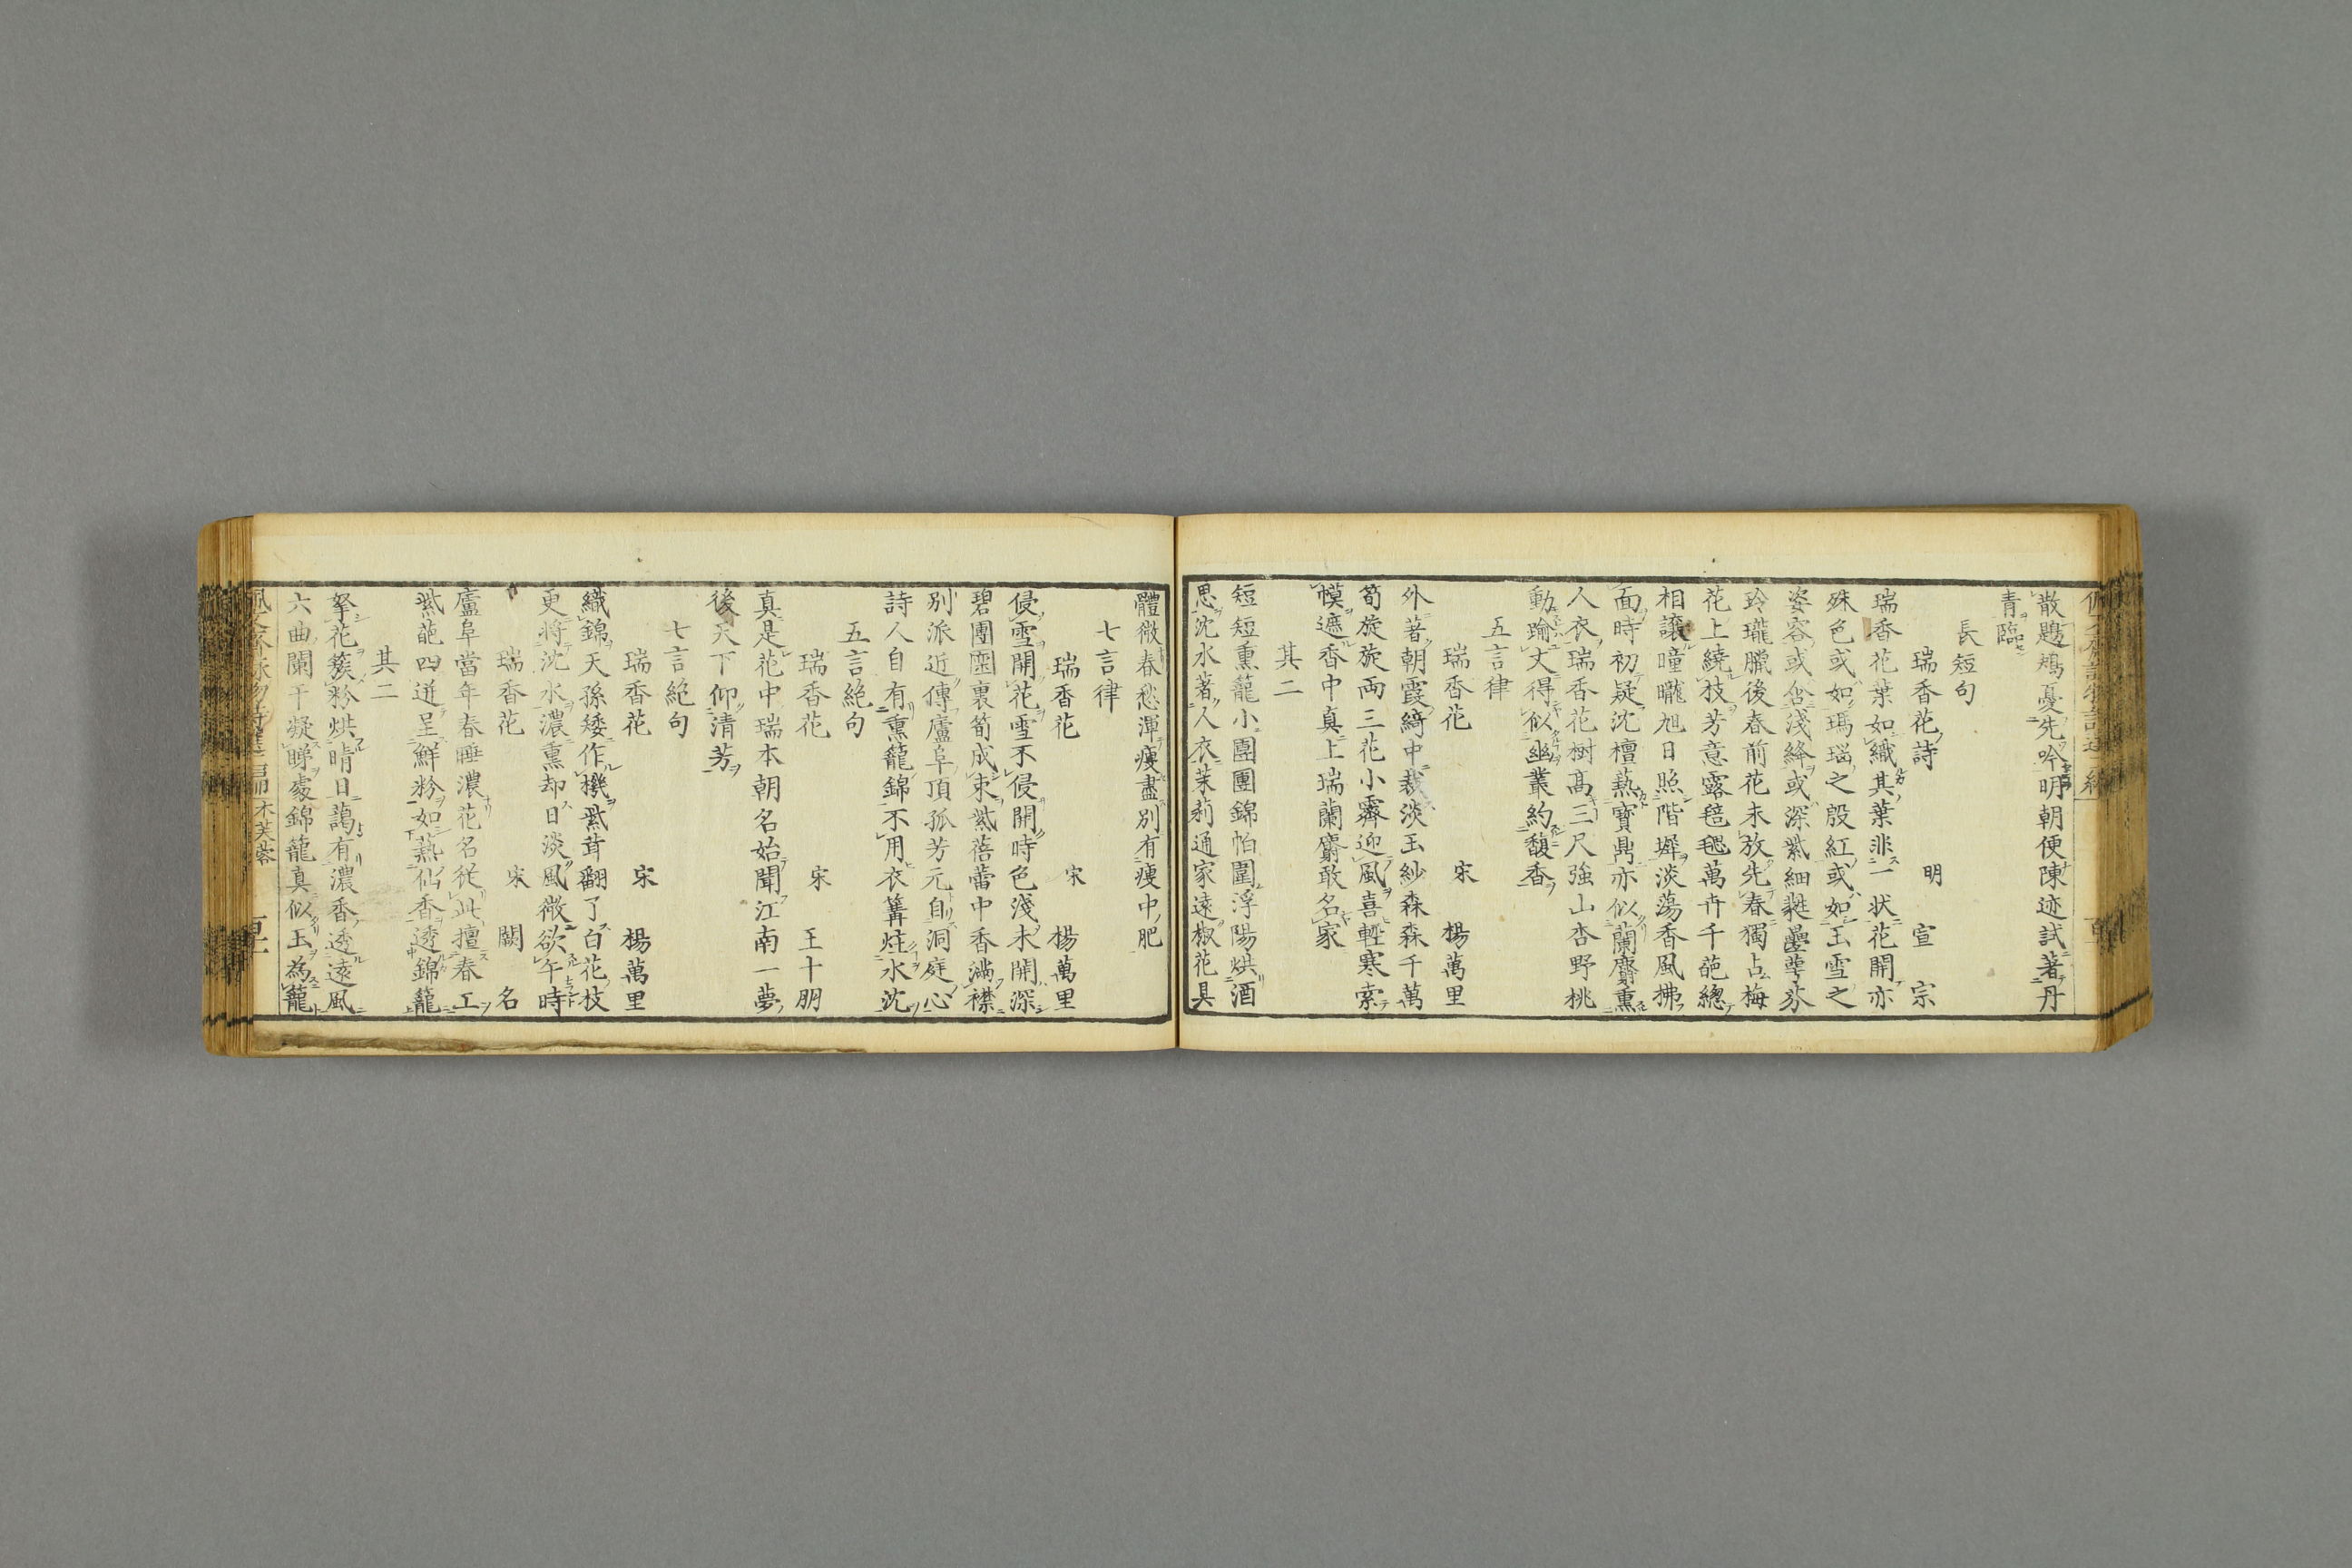 散鶗鴂憂先吟明朝便陳迹試著丹
青臨
長短句
瑞香花詩 明 宣宗
瑞香花葉如織其葉非一状花開亦
殊色或如瑪瑙之殷紅或如玉雪之
姿容或含淺絳或深紫細蕤疊萼芬
玲瓏臘後春前花未放先春獨占梅
花上繞枝芳意露毿毿萬卉千葩總
相讓曈曨旭日照階墀淡蕩香風拂
面時初疑沈檀爇寶鼎亦似蘭麝熏
人衣瑞香花樹髙三尺強山杏野桃
動踰丈得似幽叢約馥香
五言律
瑞香花 宋 楊萬里
外著朝霞綺中裁淡玉紗森森千萬
筍旋旋兩三花小霽迎風喜輕寒索
幙遮香中真上瑞蘭麝敢名家
其二
短短熏籠小團團錦帕圍浮陽烘酒
思沈水著人衣茉莉通家遠椒花具
體微春愁渾瘦盡別有瘦中肥
七言律
瑞香花 宋 楊萬里
侵雪開花雪不侵開時色淺未開深
碧團圞裏筍成束紫蓓蕾中香滿襟
別派近傳廬阜頂孤芳元自洞庭心
詩人自有熏籠錦不用衣篝炷水沈
五言絶句
瑞香花 宋 王十朋
真是花中瑞本朝名始聞江南一夢
後天下仰清芳
七言絶句
瑞香花 宋 楊萬里
織錦天孫矮作機紫茸翻了白花枝
更將沈水濃熏却日淡風微欲午時
瑞香花 宋 闕名
廬阜當年春睡濃花名従此擅春工
紫葩四迸呈鮮粉如爇仙香透錦籠
其二
拏花簇粉烘晴日藹有濃香透遠風
六曲闌干凝睇處錦籠真似玉為籠
木芙蓉